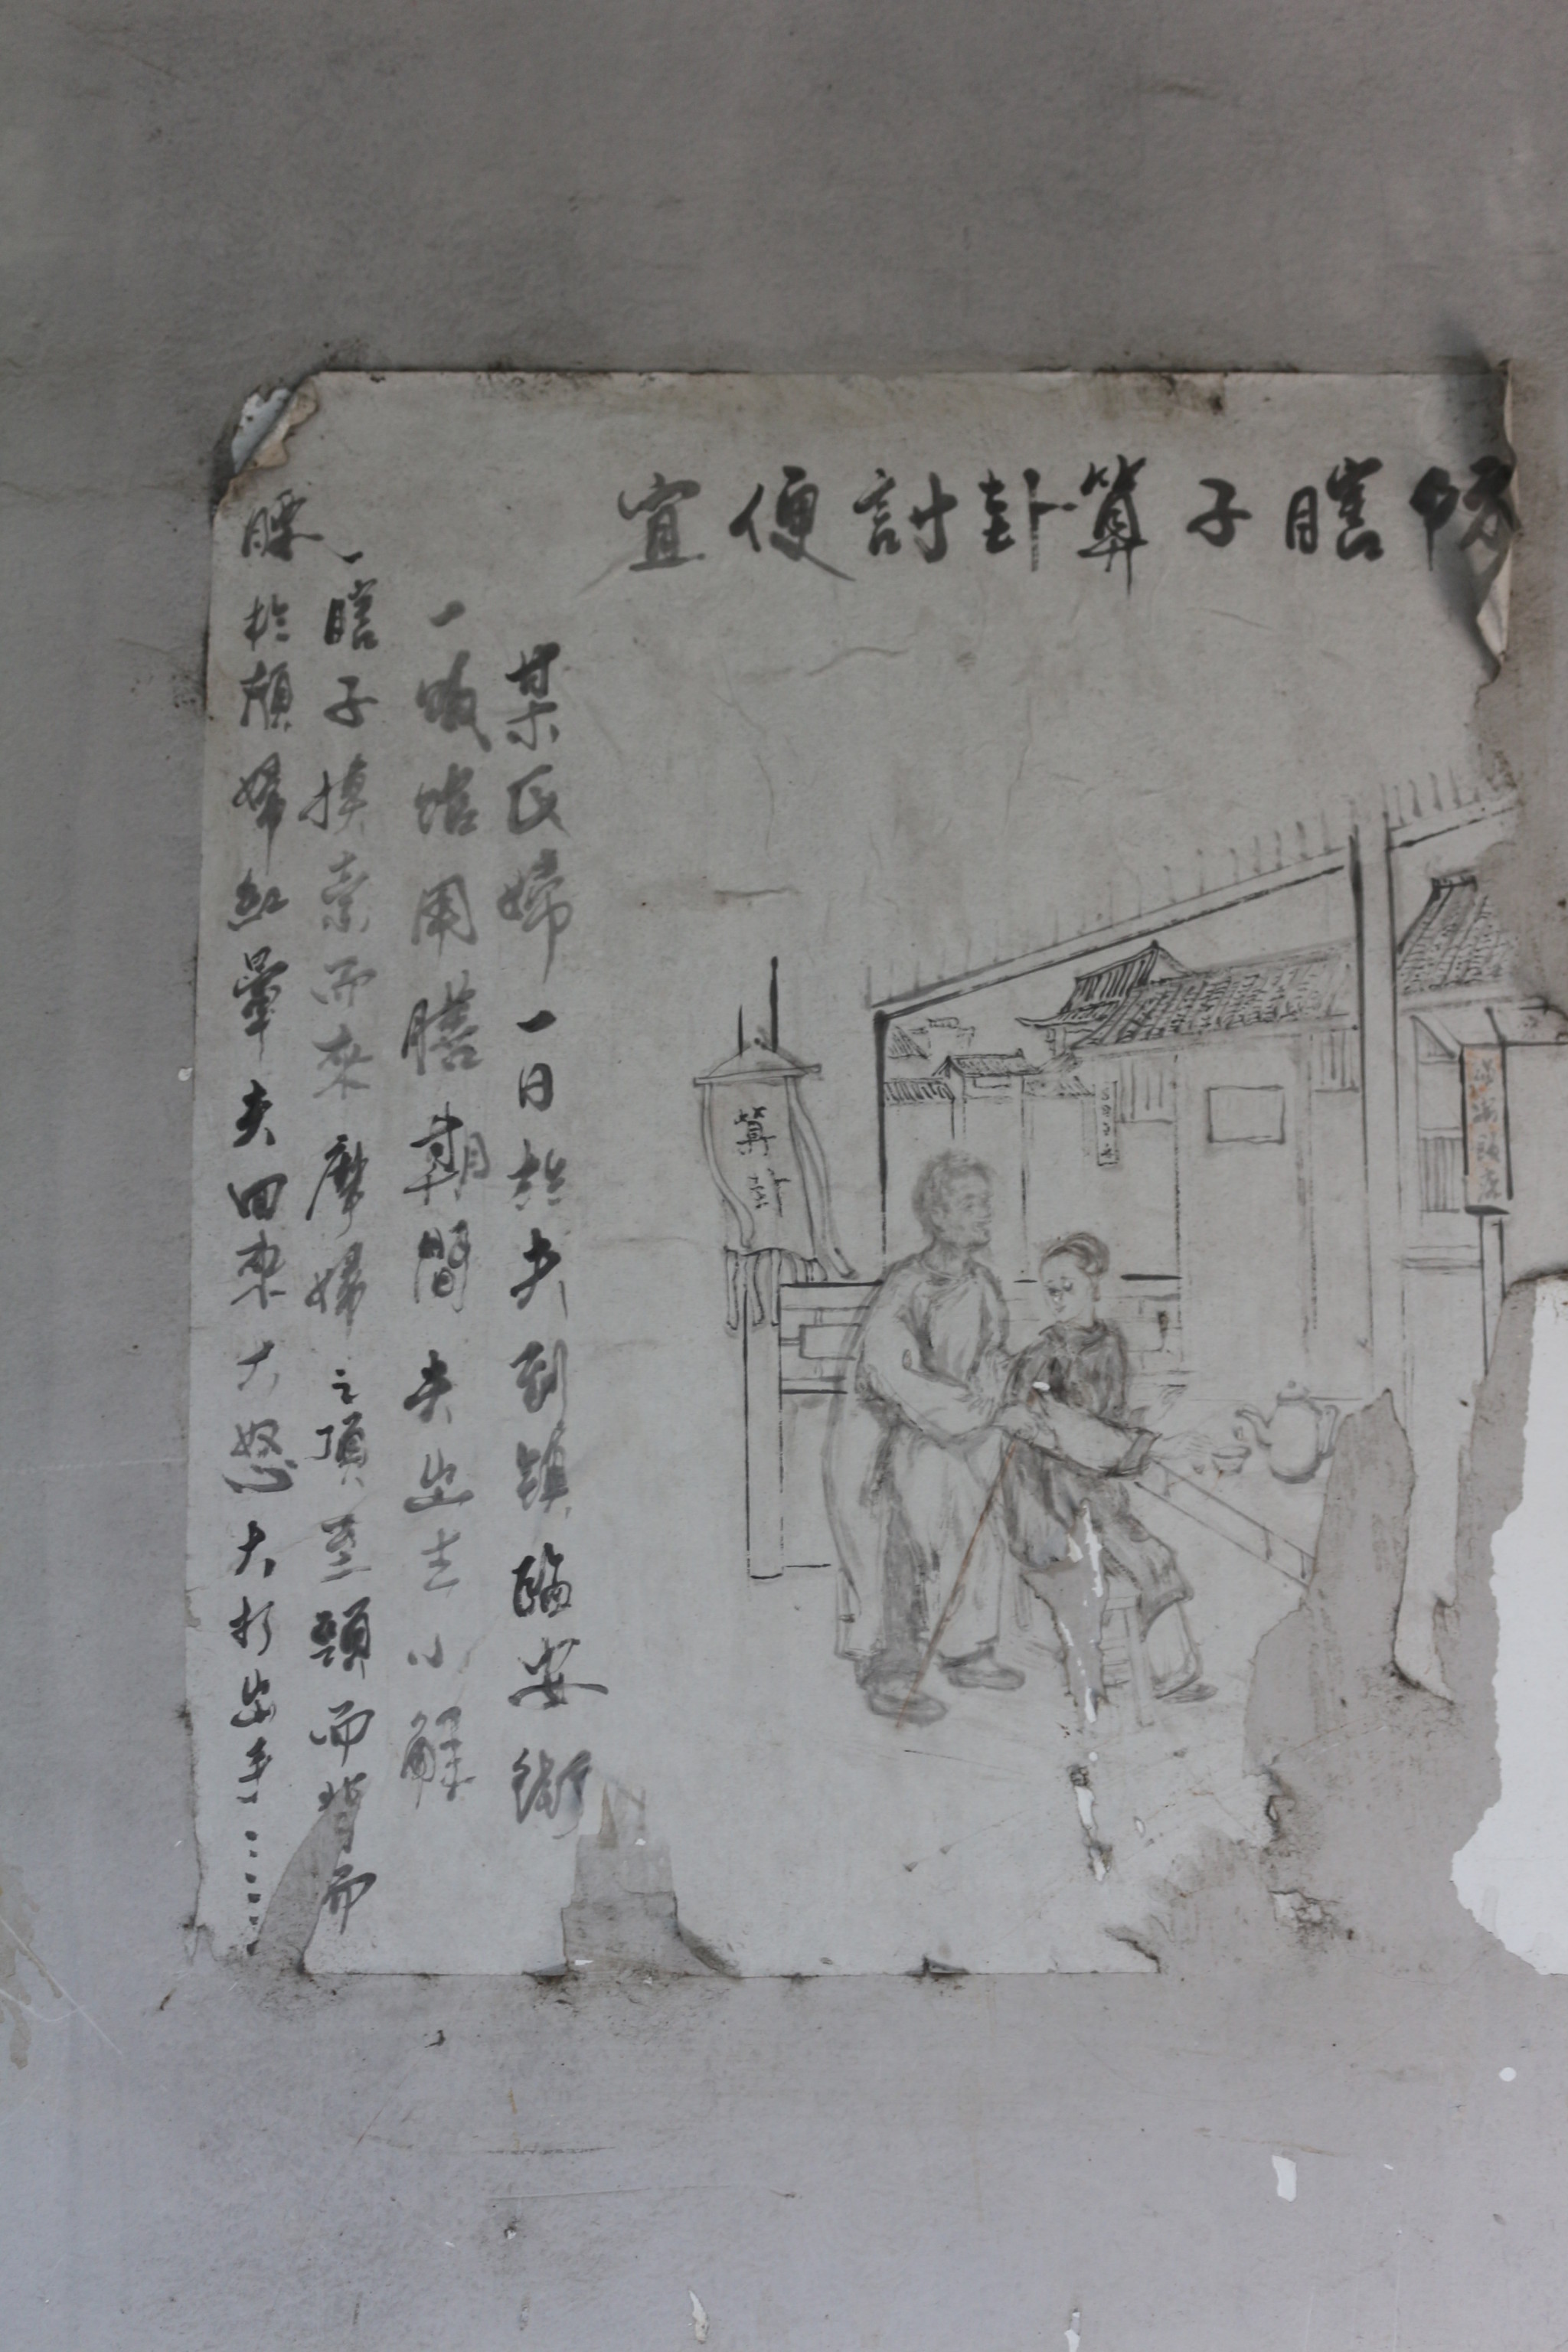 瞎子算卦討便宜
某氏婦一日於夫到鎮臨安街
一飯館用膳期間夫出去小解
一瞎子摸索而來摩婦之頂至頸而背而
腰於頰婦紅暈夫回來大怒大打出手……
算